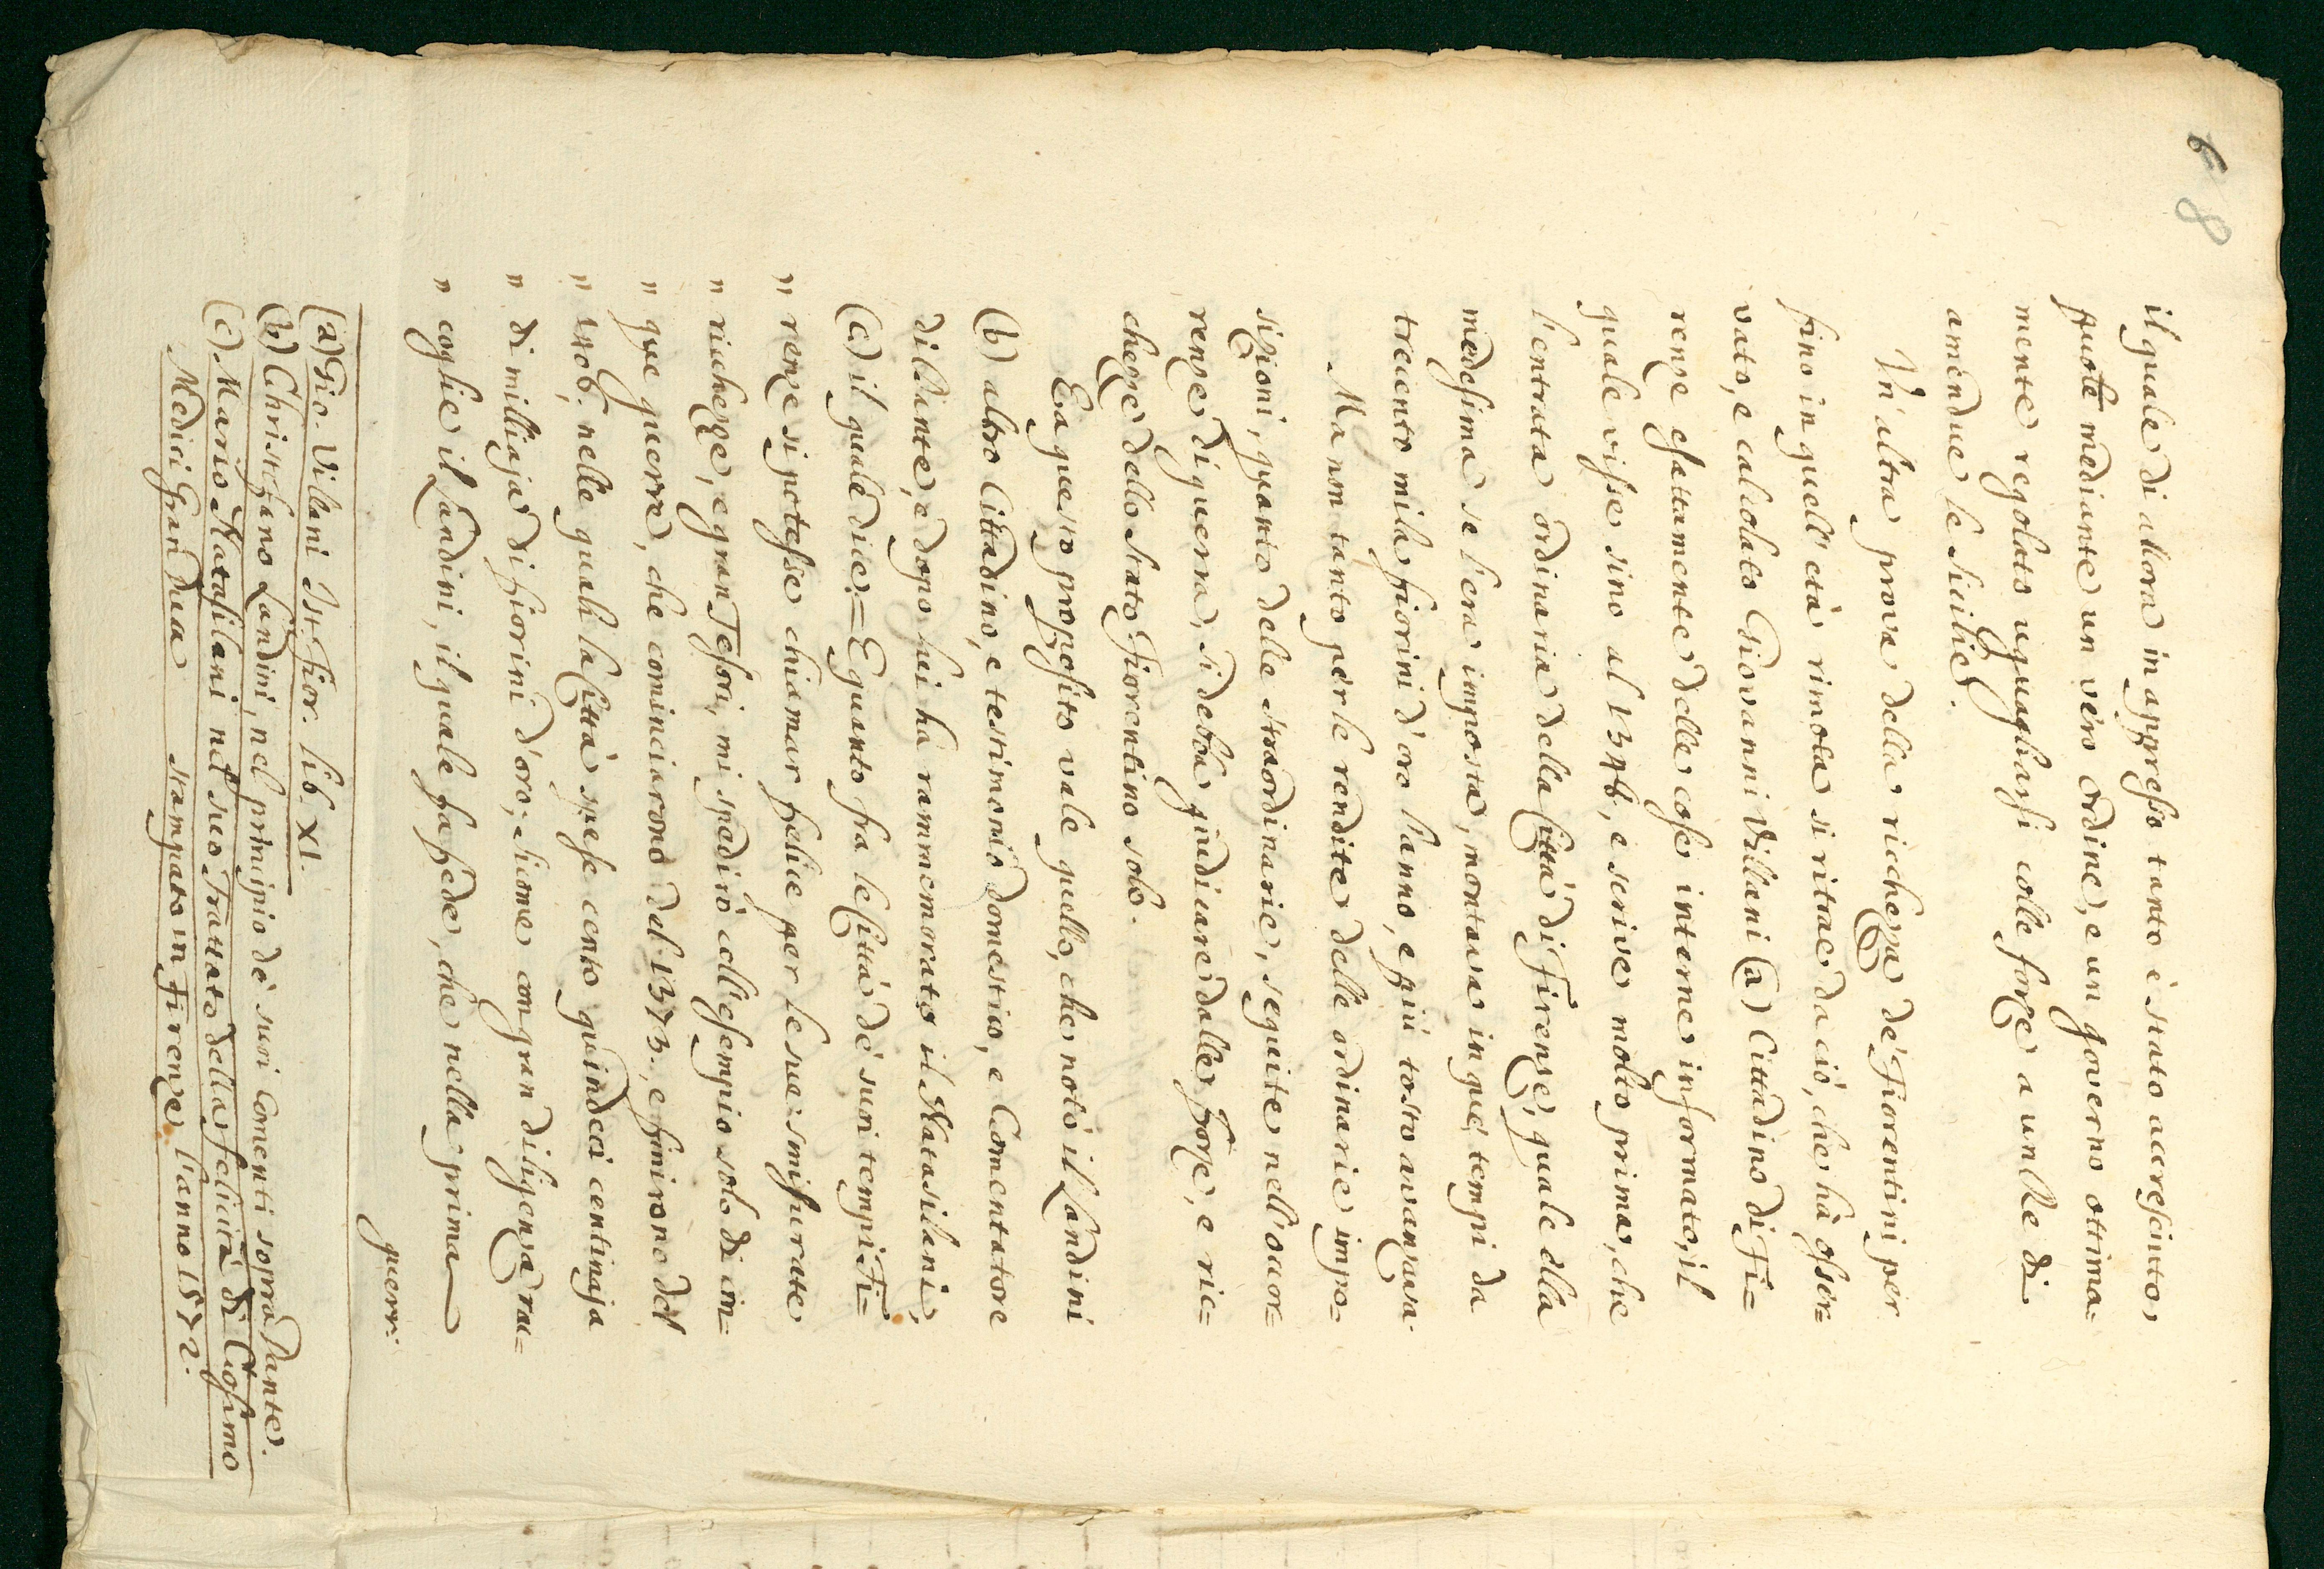 6 8
il quale di allora in appresso tanto è stato accresciuto,
puote mediante un vero ordine, e un governo ottima=
mente regolato uguagliarsi colle forze a un Re di
amendue le Sicilie.
Un'altra prova della ricchezza de' Fiorentini per
fino in quell'età rimota si ritrae da ciò, che hà osser=
vato, e calcolato Giovanni Villani (a) Cittadino di Fi=
renze esattamente delle cose interne informato, il
quale visse sino al 1348, e scrive molto prima, che
l'entrata ordinaria della Città di Firenze, quale ella
medesima se l'era imposta, montava in que' tempi da
trecento mila fiorini d'oro l'anno, e più tosto avanzava.
Ma non tanto per le rendite delle ordinarie impo=
sizioni, quanto delle straordinarie, seguite nell'occor=
renze di guerra, si debba giudicare dalle forze, e ric=
chezze dello Stato Fiorentino solo.
E a questo proposito vale quello, che notò il Landini
(b) altro Cittadino, e testimonio domestico, e Comentatore
di Dante, e dopo lui ha rammemorato il Matasilani,
(c) il quale dice = E quanto fra le Città de' suoi tempi Fi=
" renze si potesse chiamar felice per le sue smisurate
" ricchezze, e gran Tesori, mi spedirò coll'esempio solo di cin=
" que guerre, che cominciarono dal 1375., e finirono del
" 1406. nelle quali la Città spese cento quindeci centinaja
" di milliaja di fiorini d'oro; sicome con gran diligenza rac=
" coglie il Landini, il quale fa fede, che nella prima
guerr:
(a) Gio. Villani Ist. Fior. lib. XI.
(b) Christofano Landini, nel principio de' suoi Comenti sopra Dante.
(c) Mario Matasilani nel suo Trattato della felicità di Cosimo
Medici Gran Duca stampato in Firenze l'anno 1572.